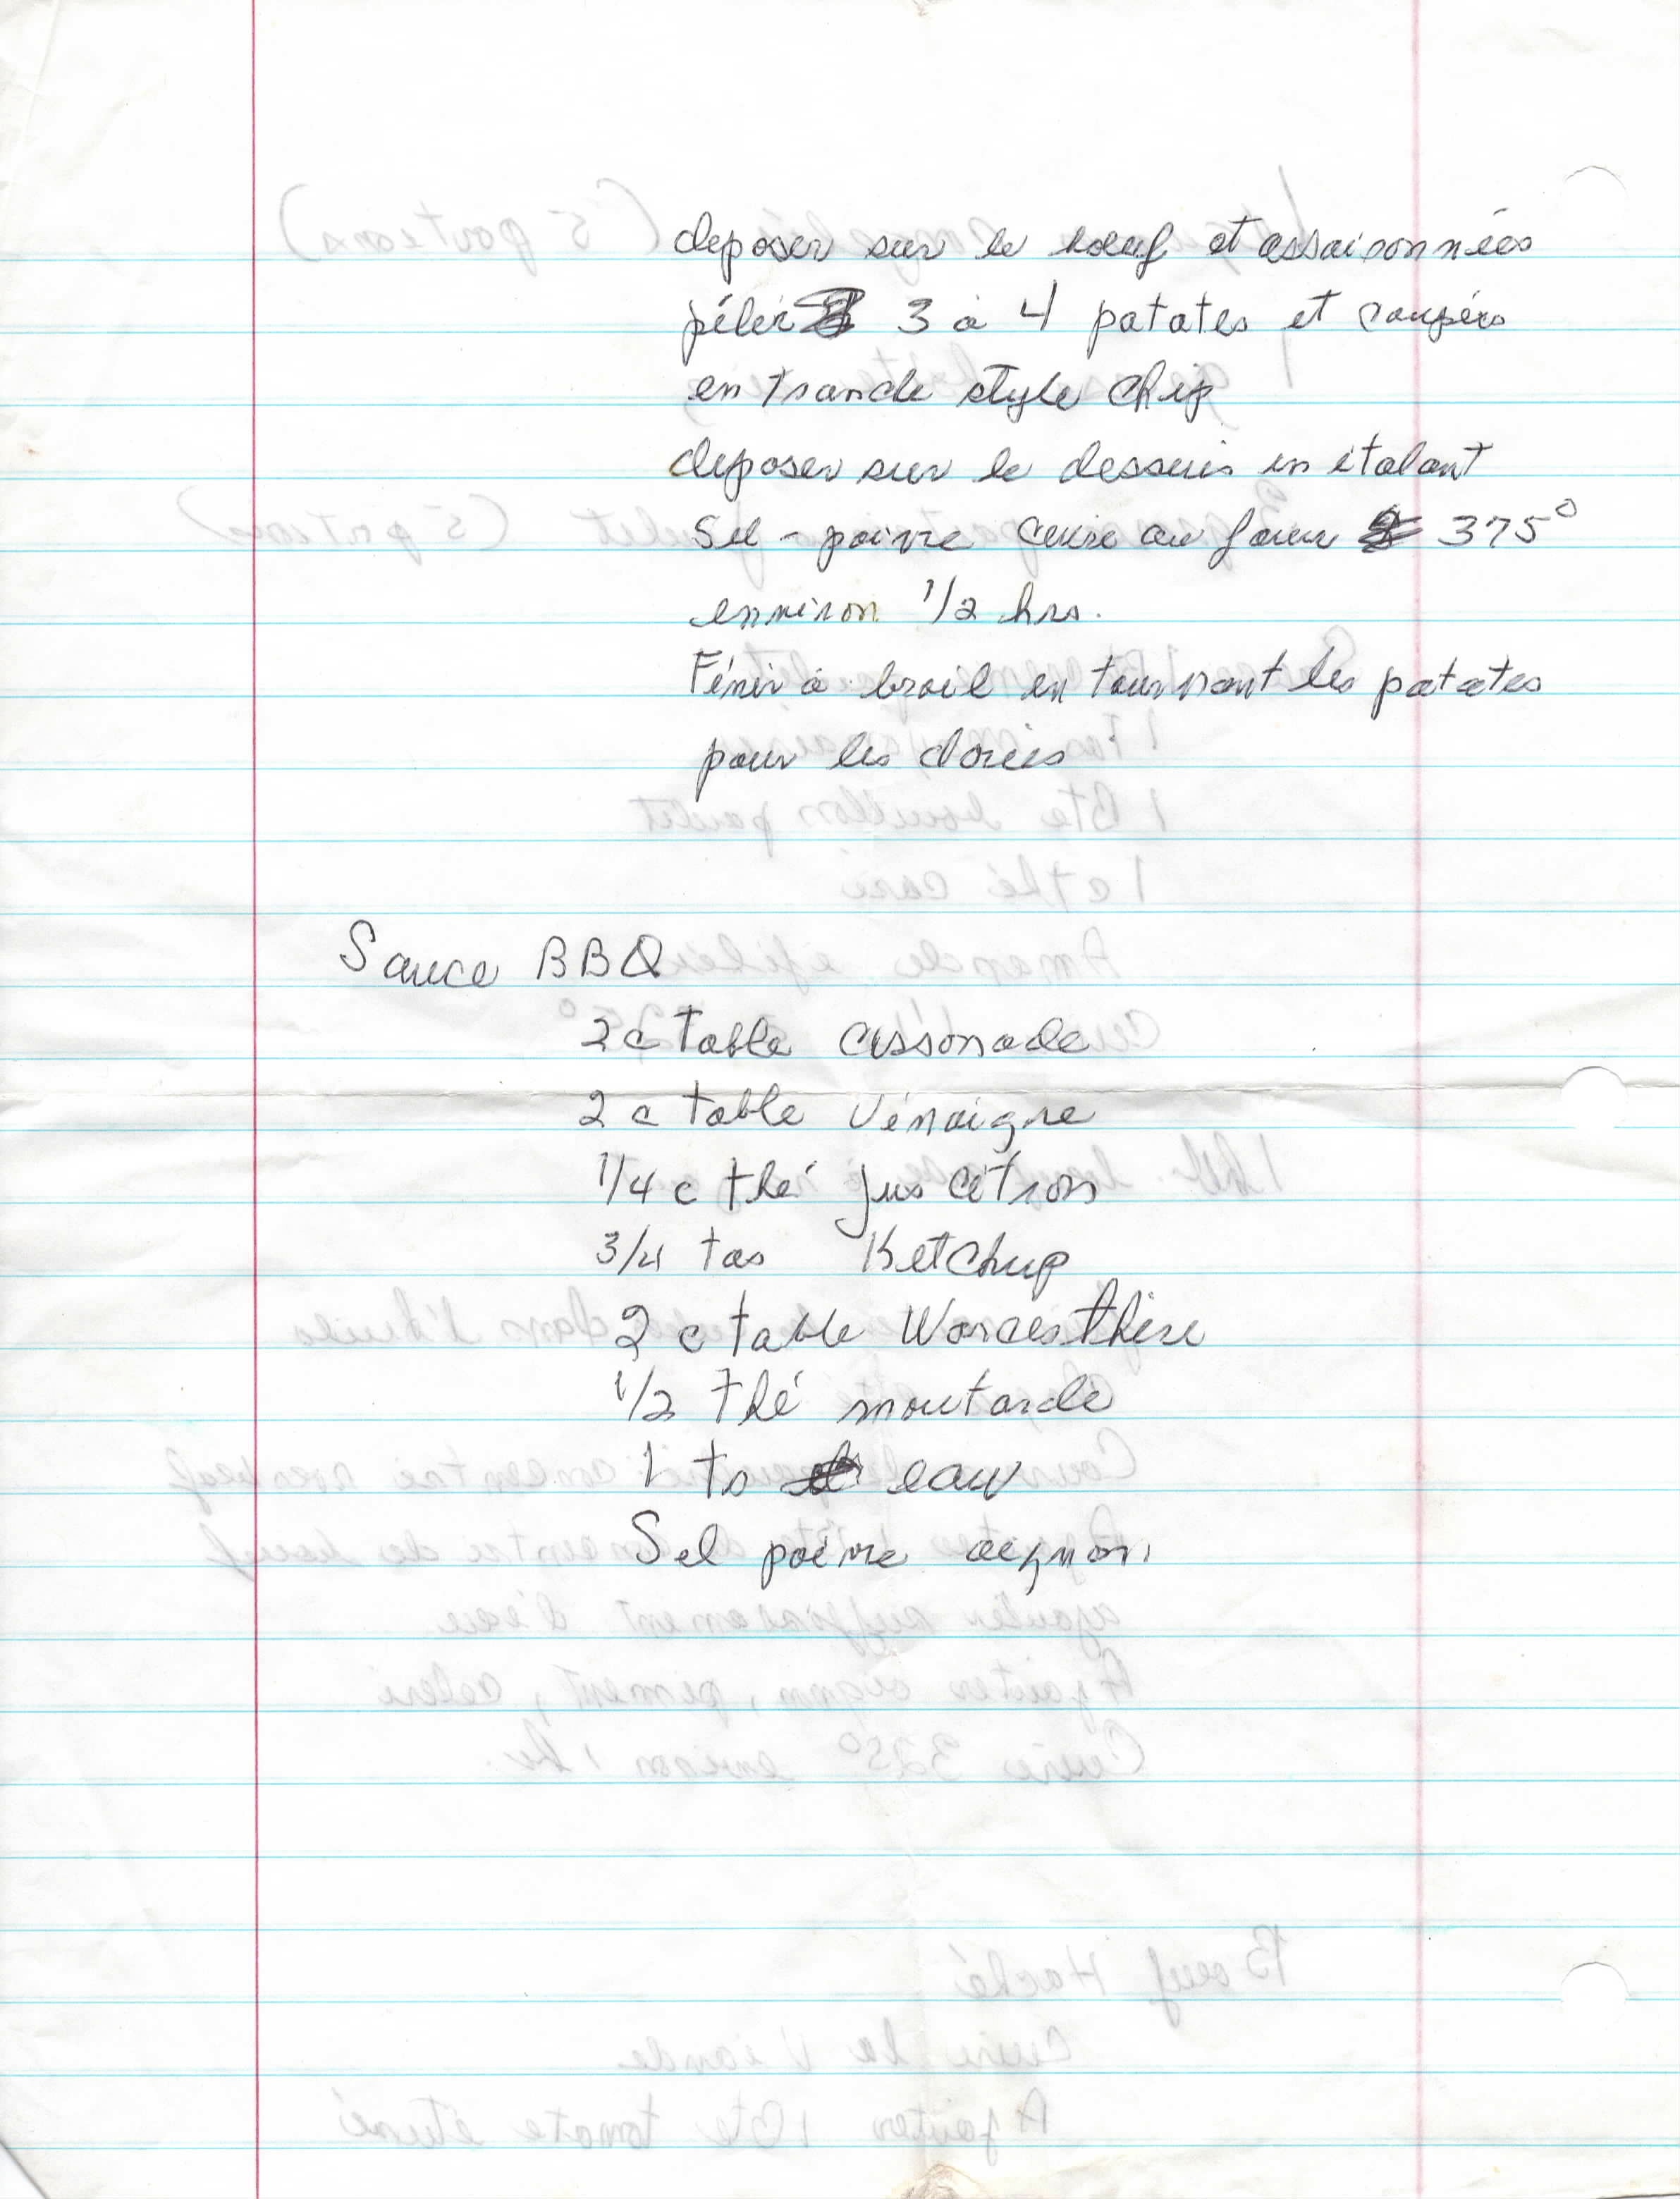 deposer sur le boeuf et assaisonnées
péler 3 à 4 patates et coupées
en tranche style chip
deposer sur le dessuis en étalant
Sel - poivre cuire au four 375°
environ 1/2 hrs.
Fénir à broil en tournant les patates
pour les dorées
Sauce BBQ
2 c table cassonade
2 c table Vénaigre
1/4 c thé jus citron
3/4 tas Ketchup
2 c table Worcesthire
1/2 thé moutarde
1 ts eau
Sel poivre oignon